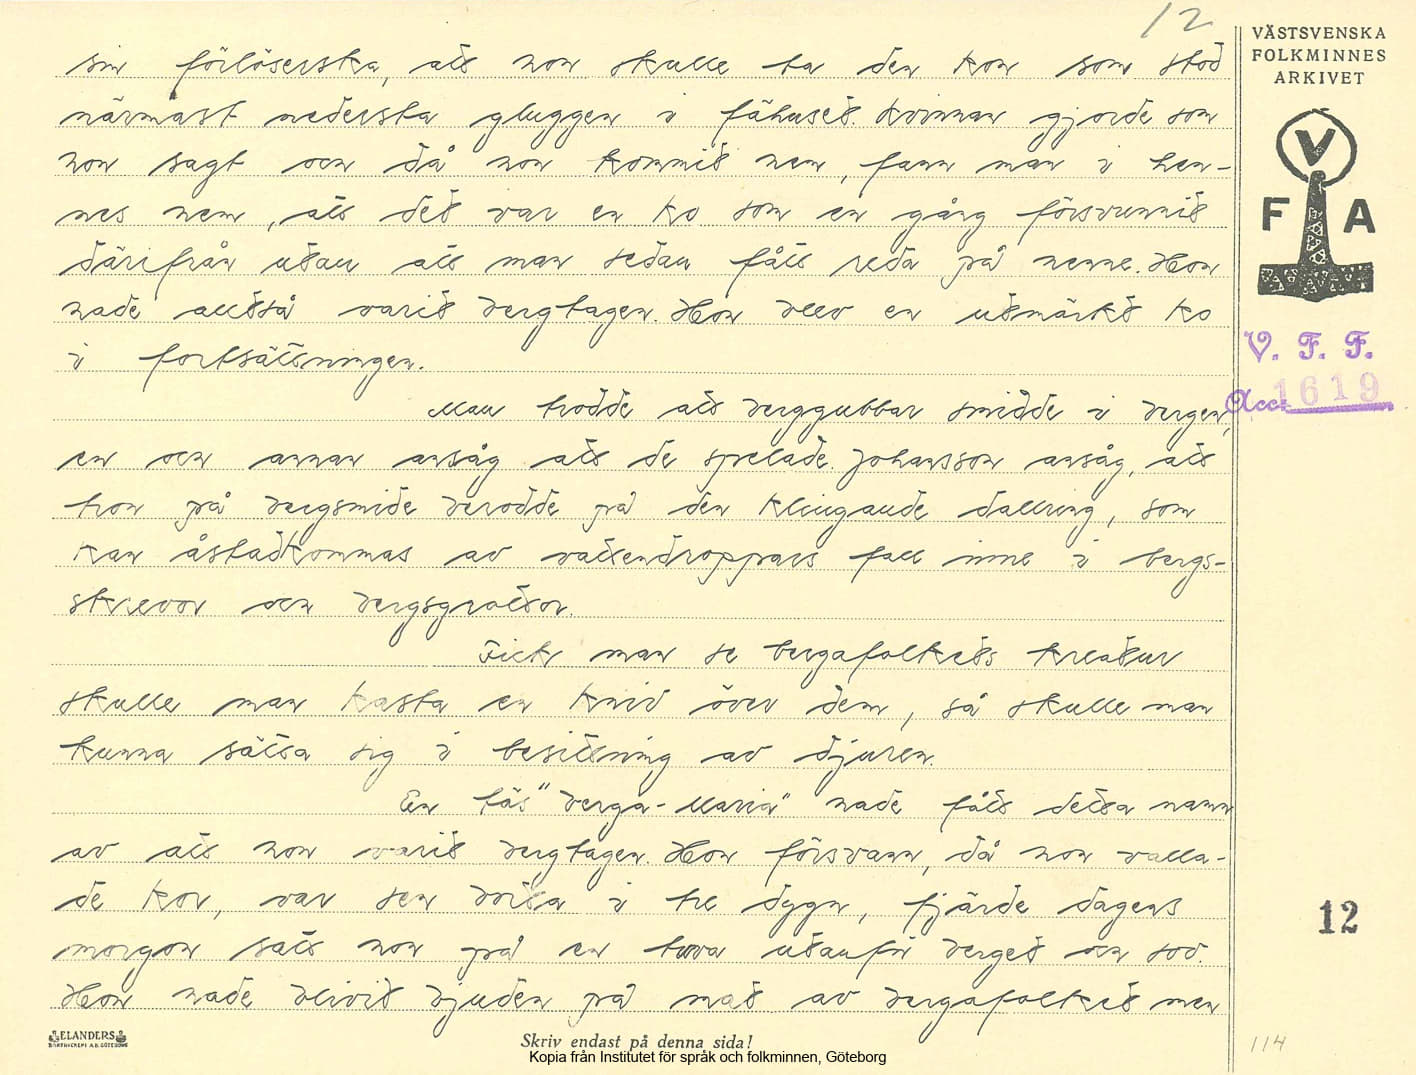 12
VÄSTSVENSKA
FOLKMINNES
ARKIVET
V
F A
V. F. F.
Acc. 1619
sin förlöserska, att hon skulle ta den kon som stod
närmast nedersta gluggen i fähuset. Kvinnan gjorde som
hon sagt och då hon kommit hem, fann man i hen-
nes hem, att det var en ko som en gång försvunnit
därifrån utan att man sedan fått reda på henne. Hon
hade alltså varit bergtagen. Hon blev en utmärkt ko
i fortsättningen.
Man trodde att berggubbar smidde i bergen,
en och annan ansåg att de spelade. Johansson ansåg, att
tron på bergsmide berodde på den klingande dallring, som
kan åstadkommas av vattendroppars fall inne i bergs-
skrevor och bergsgrottor.
Fick man se bergafolkets kreatur
skulle man kasta en kniv över dem, så skulle man
kunna sätta sig i besittning av djuren.
En tös "Berga-Maria" hade fått detta namn
av att hon varit bergtagen. Hon försvann, då hon valla-
de kor, var sen borta i tre dygn, fjärde dagens
morgon satt hon på en tuva utanför berget och sov.
Hon hade blivit bjuden på mat av bergafolket men
12
114
ELANDERS
BOKTRYCKERI A.B. GÖTEBORG
Skriv endast på denna sida!
Kopia från Institutet för språk och folkminnen, Göteborg